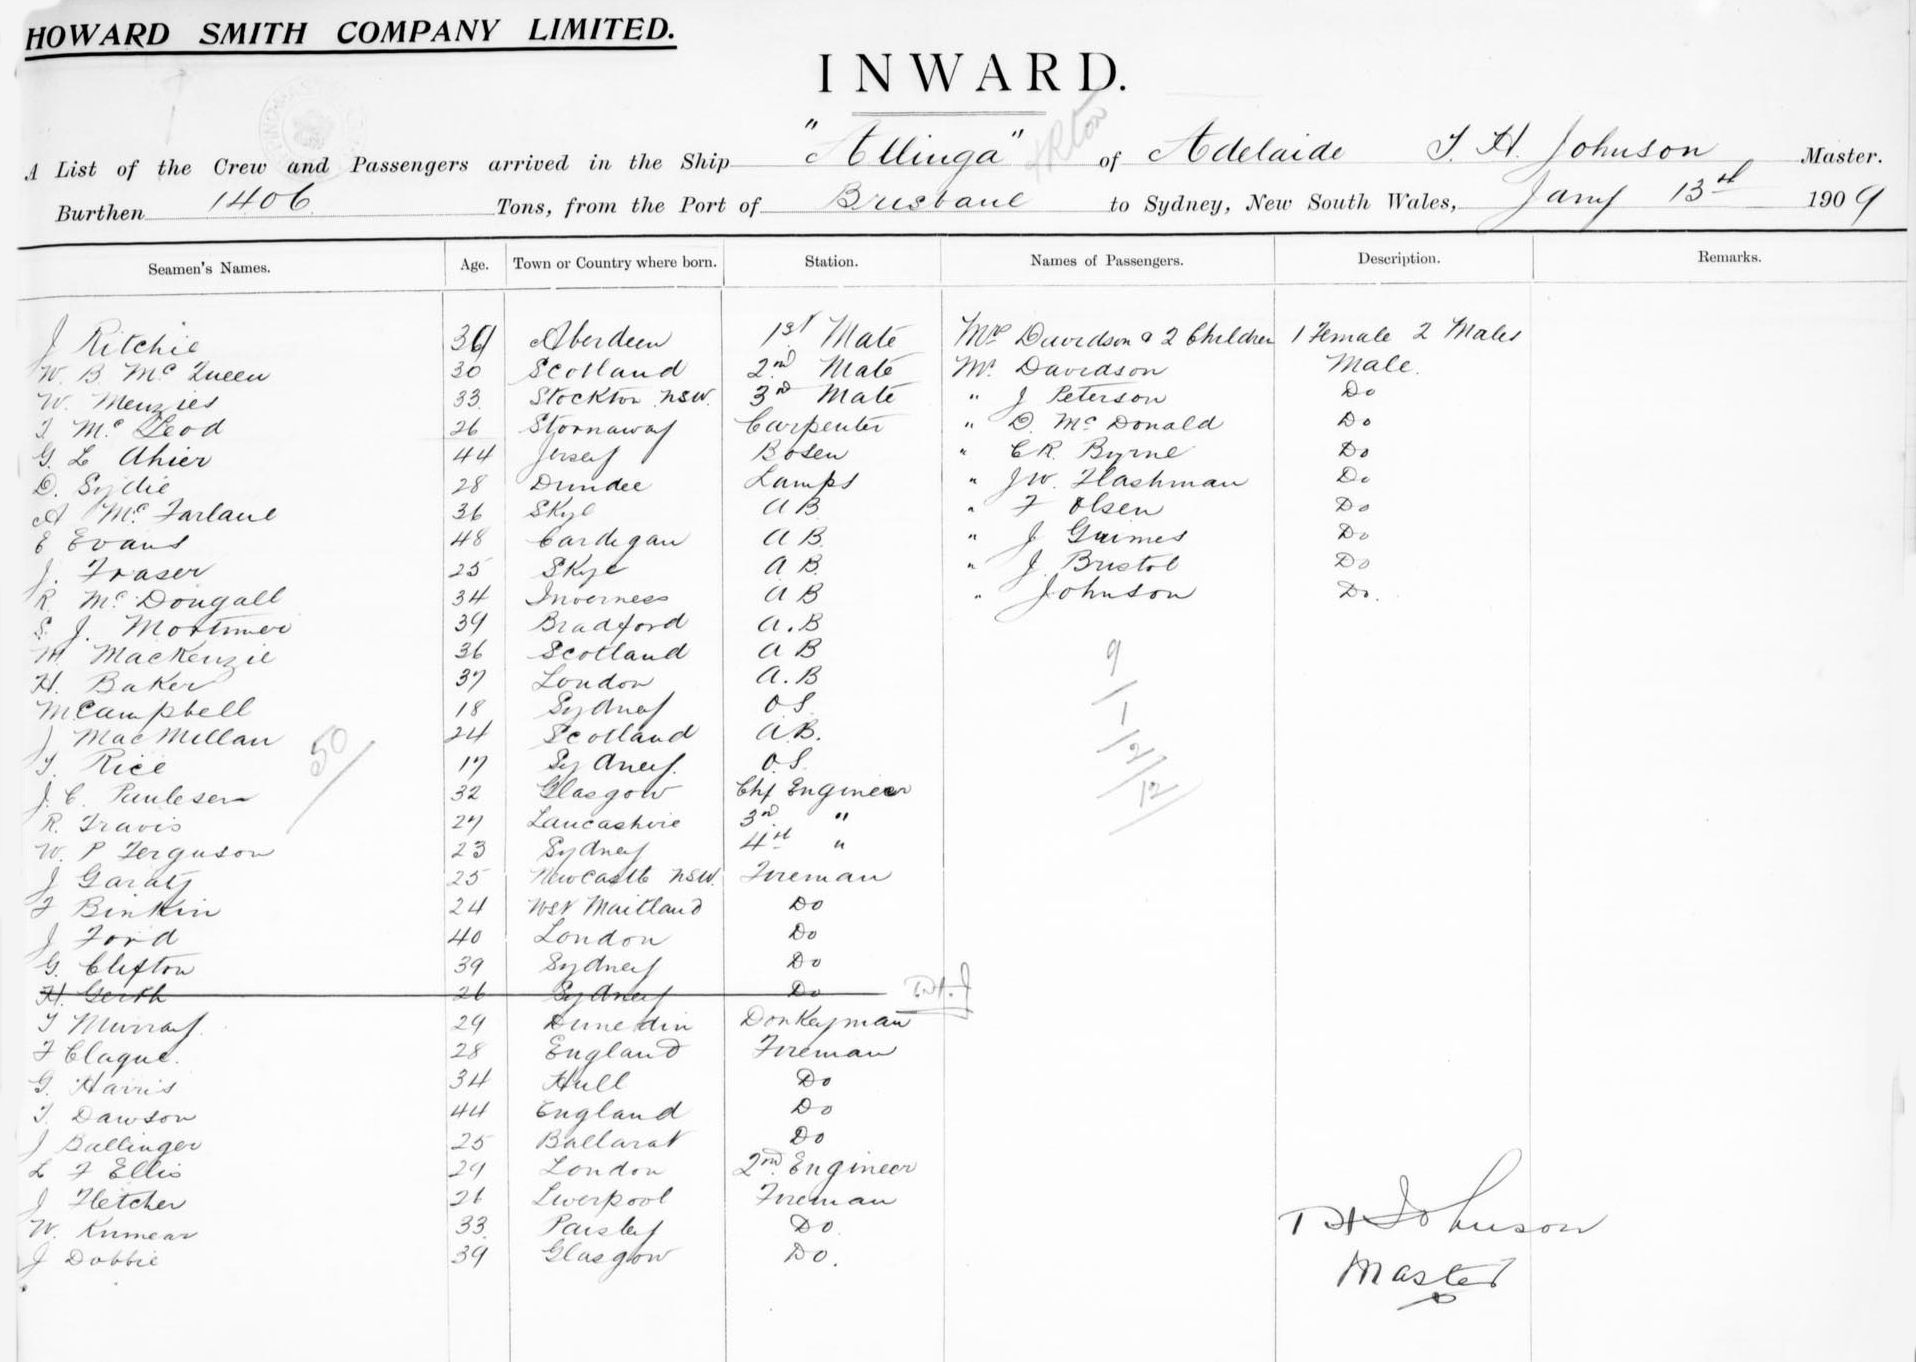 HOWARD SMITH COMPANY LIMITED.
INWARD.
A List of the Crew and Passengers arrived in the Ship "Allinga" of Adelaide T. H. Johnson Master.
Burthen 1406 Tons, from the Port of Brisbane to Sydney, New South Wales, Jany 13th 1909
Seamen's Names. Age. Town or Country where born. Station. Names of Passengers. Description. Remarks.
J Ritchie 36 Aberdeen 1st Mate Mrs Davidson & 2 Children 1 Female 2 Males
W. B. McQueen 30 Scotland 2nd Mate Mr. Davidson Male.
W. Menzies 33 Stockton NSW. 3rd Mate " J Peterson Do
T McLeod 26 Stornaway Carpenter " D. McDonald Do
G. L Ahier 44 Jersey Bosen " C R. Byrne Do
D. Sydie 28 Dundee Lamps " J W. Flashman Do
A McFarlane 36 Skye A B " F Olsen Do
E Evans 48 Cardegan A B. " J Grimes Do
J. Fraser 25 Skye A B. " J. Bristol Do
R. McDougall 34 Inverness A B " Johnson Do.
S. J. Mortimer 39 Bradford A.B
M. MacKenzie 36 Scotland A B 9
H. Baker 37 London A.B
M Campbell 18 Sydney O S. 1
J MacMillan 24 Scotland A.B. 50
T. Rice 17 Sydney. O.S. 2
J. C. Paulesen 32 Glasgow Chf Engineer 12
R. Travis 27 Lancashire 3rd "
W. P Ferguson 23 Sydney 4th "
J Garaty 25 Newcastle NSW. Fireman
F Binkin 24 West Maitland Do
J Ford 40 London Do
G. Clifton 39 Sydney Do
H. Gerth 26 Sydney Do T.H.J
T Murray. 29 Dunedin Donkeyman
F Clague. 28 England Fireman
G. Harris 34 Hull Do
T. Dawson 44 England Do
J Ballinger 25 Ballarat Do
L F Ellis 29 London 2nd Engineer
J Fletcher 26 Liverpool Fireman
W. Kinnear 33 Paisley Do
J Dobbie 39 Glasgow Do.
T H Johnson
Master